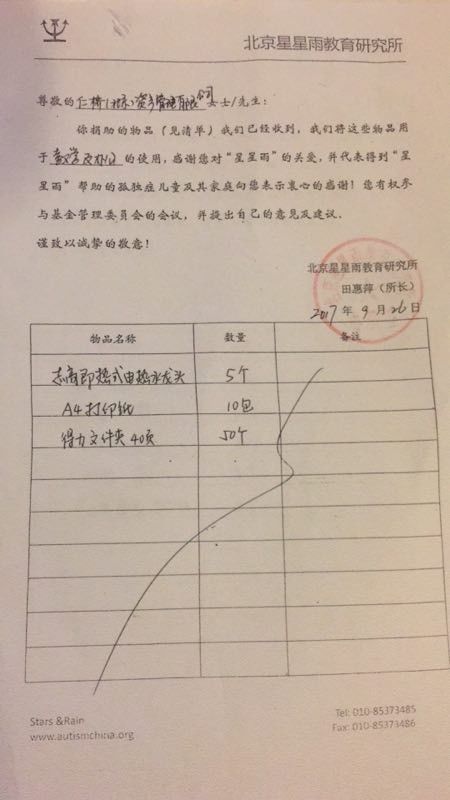 北京星星雨教育研究所
尊敬的仁椅(北京)资产管理有限公司女士/先生：
你捐助的物品（见清单）我们已经收到，我们将这些物品用
于教学及办公的使用，感谢您对“星星雨”的关爱，并代表得到“星
星雨”帮助的孤独症儿童及其家庭向您表示衷心的感谢！您有权参
与基金管理委员会的会议，并提出自己的意见及建议．
谨致以诚挚的敬意！
北京星星雨教育研究所
田惠萍（所长）
2017 年 9 月 26 日
物品名称 数量 备注
志高即热式电热水龙头 5个
A4打印纸 10包
得力文件夹 40页 50个
Stars &Rain Tel: 010-85373485
www.autismchina.org Fax: 010-85373486